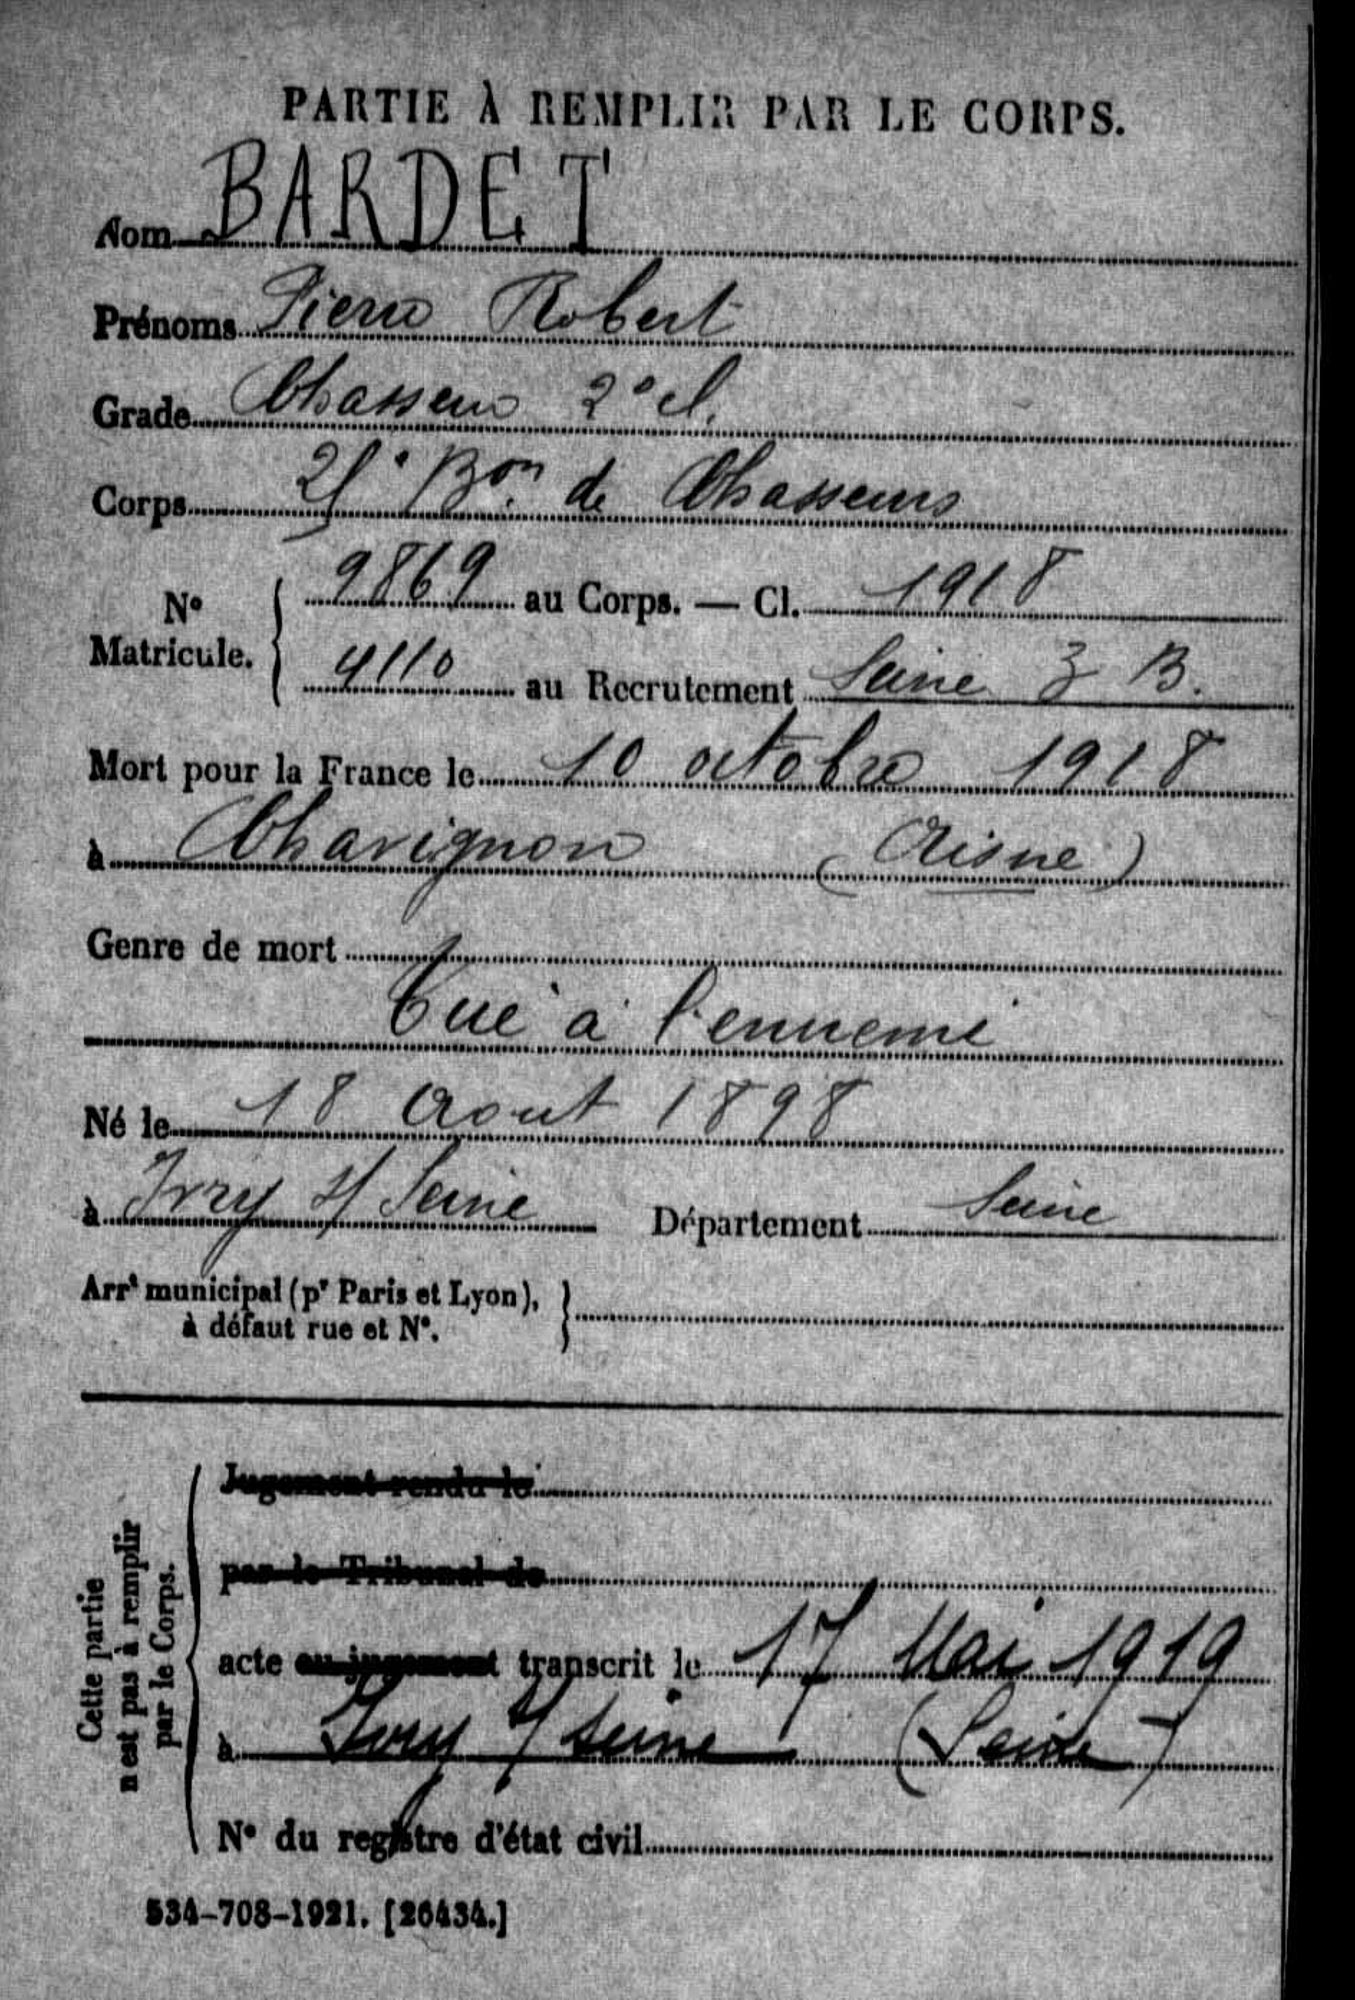 PARTIE À REMPLIR PAR LE CORPS.
Nom BARDET
Prénoms Pierre Robert
Grade Chasseur 2e cl.
Corps Bon. de Chasseurs
No Matricule. 9869 au Corps. — Cl. 1918
4110 au Recrutement Seine 3 B.
Mort pour la France le 10 octobre 1918
à Chavignon (Aisne)
Genre de mort
Tué à l'ennemi
Né le 18 Aout 1898
à Ivry s/ Seine Département Seine
Arrt municipal (pr Paris et Lyon),
à défaut rue et No.
Cette partie
n'est pas à remplir
par le Corps.
Jugement rendu le
par le Tribunal de
acte ou jugement transcrit le 17 Mai 1919
à Ivry s/ Seine (Seine)
No du registre d'état civil
534-708-1921. [26434.]